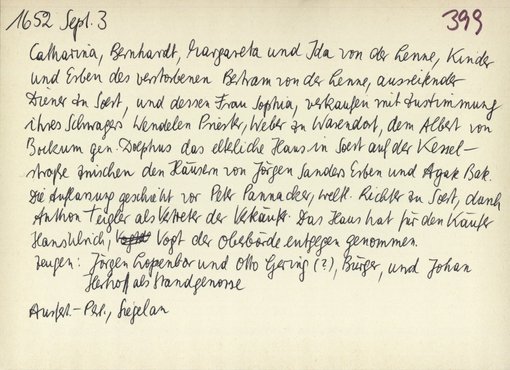 1652 Sept. 3 399
Catharina, Bernhardt, Margareta und Ida von der Lenne, Kinder
und Erben des verstorbenen Betram von der Lenne, ausreitender
Diener zu Soest, und dessen Frau Sophia, verkaufen mit Zustimmung
ihres Schwagers Wendelen Priester, Weber zu Warendorf, dem Albert von
Bockum gen. Dolphus das elterliche Haus in Soest auf der Kessel-
straße zwischen den Häusern von Jörgen Sanders Erben und
Die Auflassung geschieht vor Peter Pannacker, weltl. Richter zu Soest, durch
Anthon Teigler als Vertreter der Verkäufer. Das Haus hat für den Käufer
Hans Ulrich, Vogt der Oberbörde entgegen genommen.
Zeugen: Jörgen Lopenbor und Otto Gering (?), Bürger, und Johan
als Standgenosse
Ausfert.- Per., Siegel an